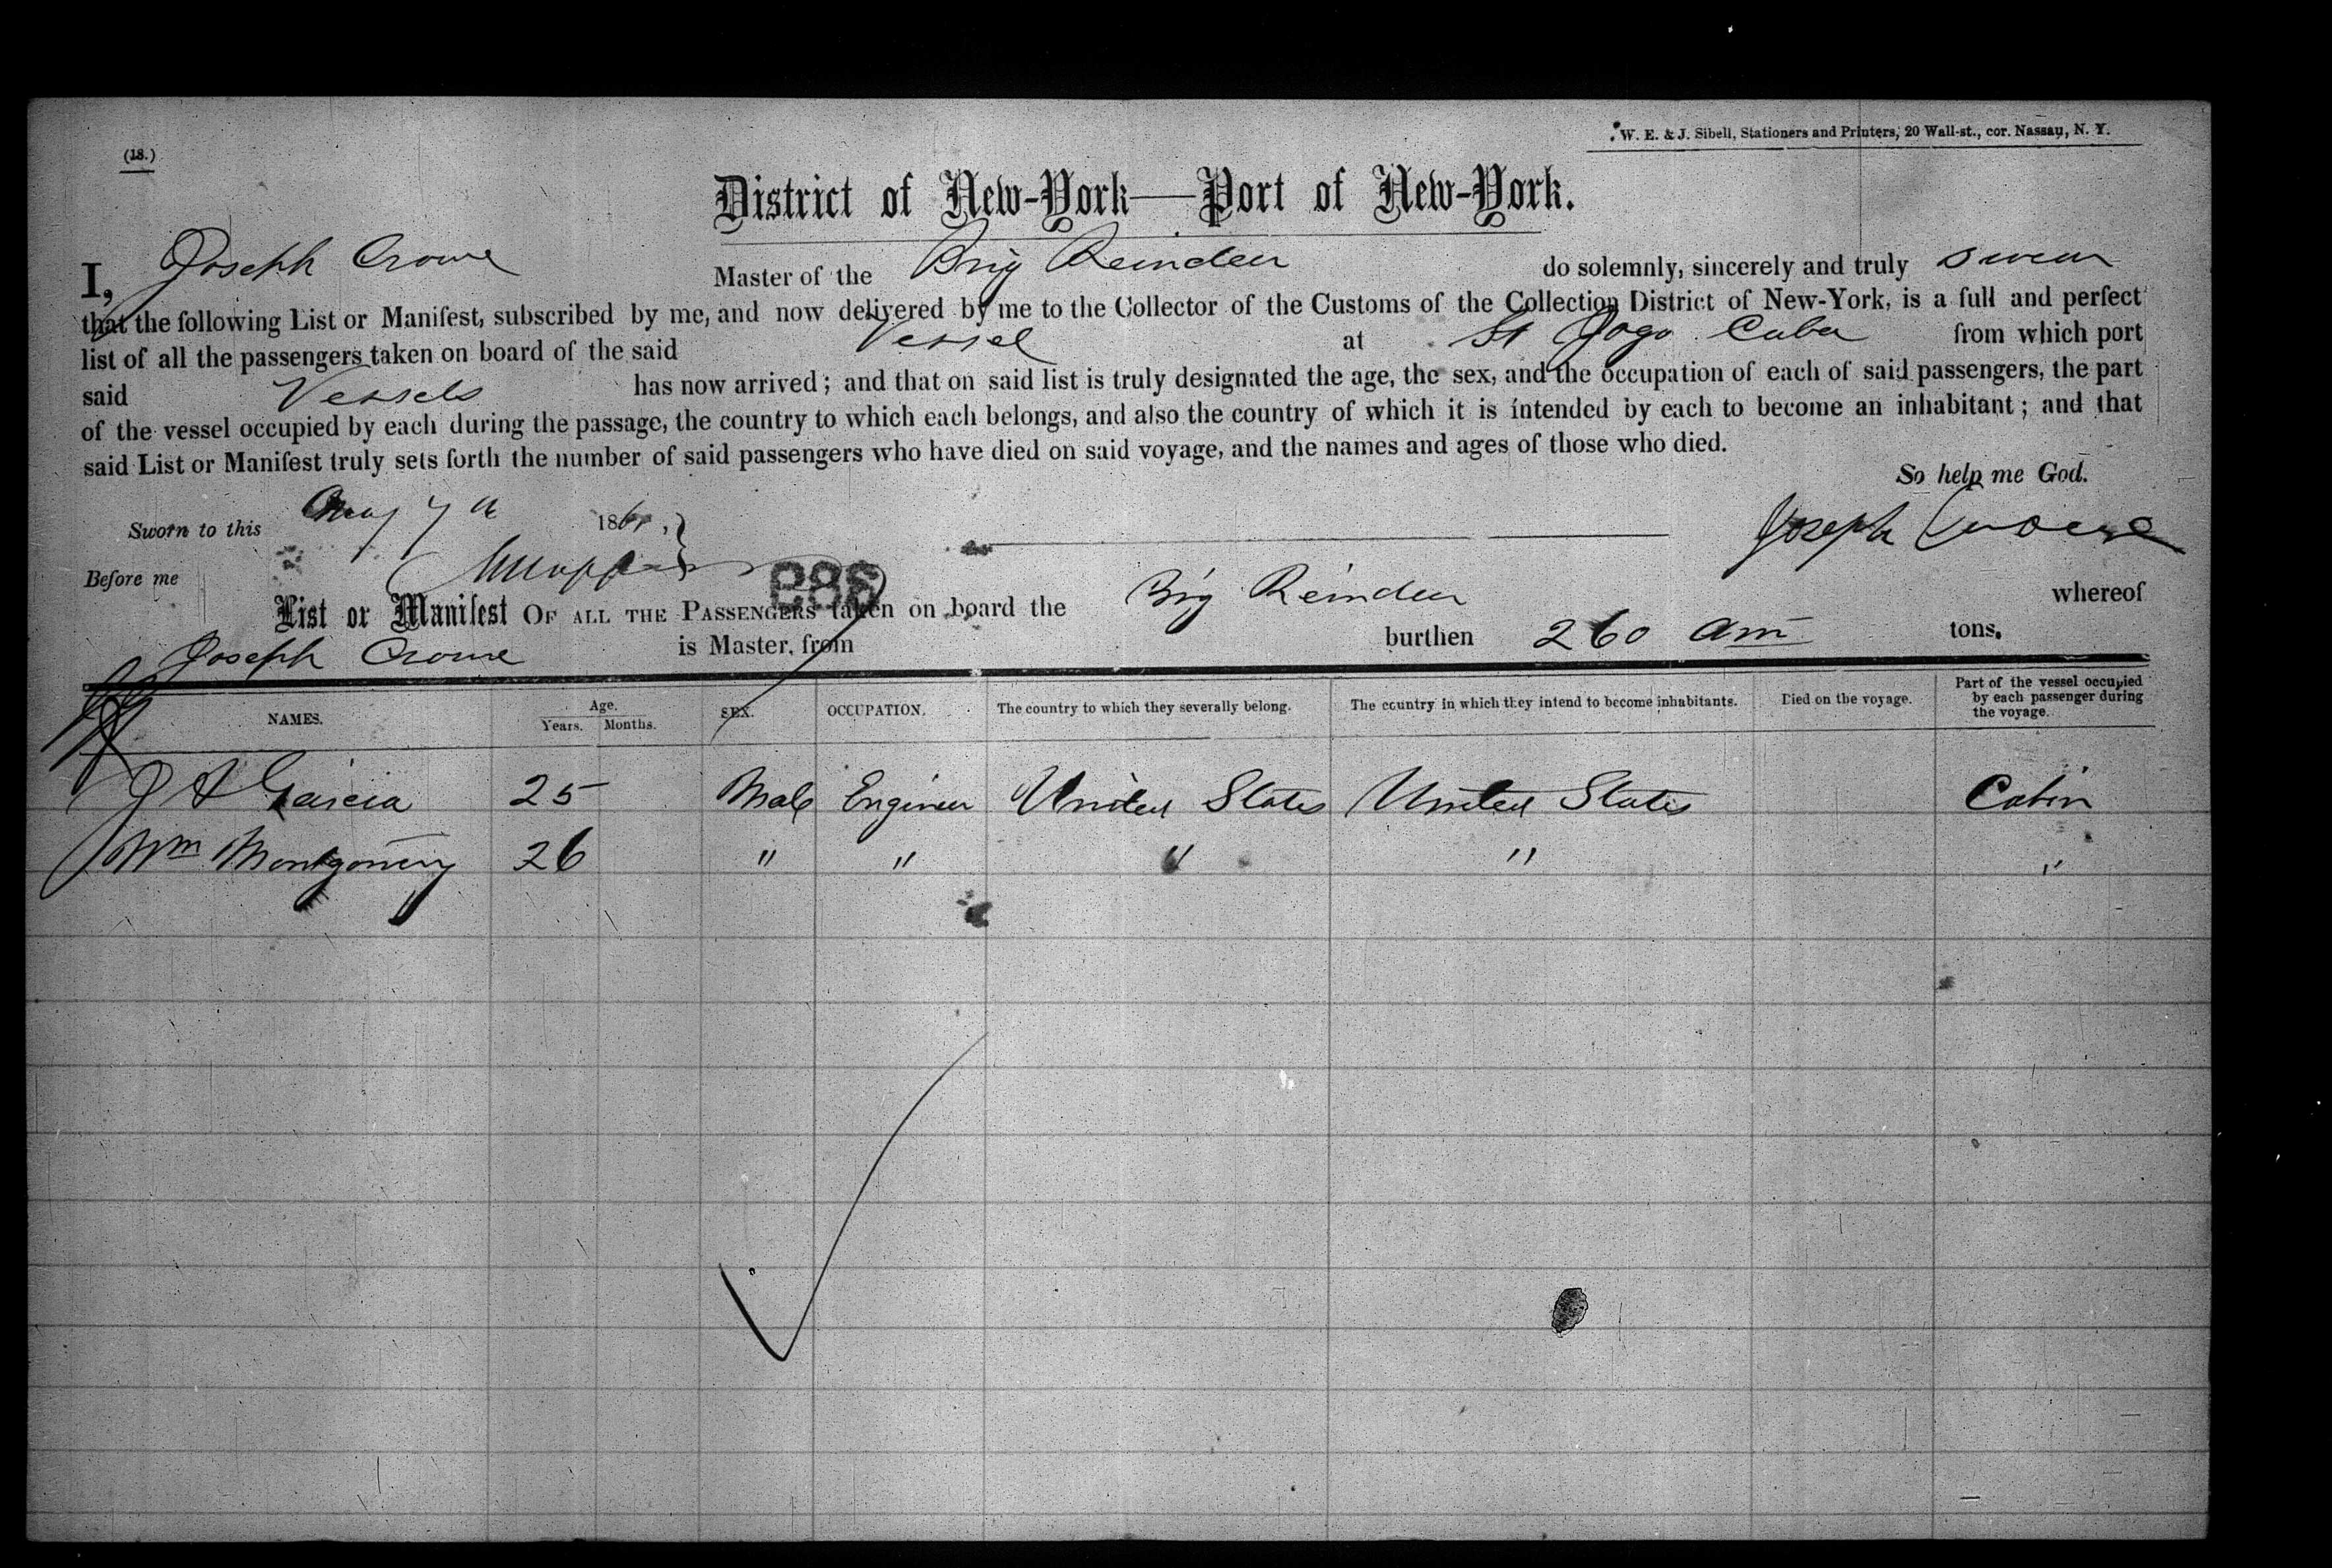 (18.)
W. E. & J. Sibell, Stationers and Printers, 20 Wall-st., cor. Nassau, N. Y.
District of New-York—Port of New-York.
I, Joseph Crowe Master of the Brig Reindeer do solemnly, sincerely and truly swear
that the following List or Manifest, subscribed by me, and now delivered by me to the Collector of the Customs of the Collection District of New-York, is a full and perfect
list of all the passengers taken on board of the said Vessel at St Jago Cuba from which port
said Vessels has now arrived; and that on said list is truly designated the age, the sex, and the occupation of each of said passengers, the part
of the vessel occupied by each during the passage, the country to which each belongs, and also the country of which it is intended by each to become an inhabitant; and that
said List or Manifest truly sets forth the number of said passengers who have died on said voyage, and the names and ages of those who died.
So help me God.
Sworn to this May 7th 186 , Joseph Crowe
Before me
List or Manifest OF ALL THE PASSENGERS taken on board the Brig Reindeer whereof
Joseph Crowe is Master, from burthen 260 tons.
NAMES. Age. Years. Months. SEX. OCCUPATION. The country to which they severally belong. The country in which they intend to become inhabitants. Died on the voyage. Part of the vessel occupied by each passenger during the voyage.
J A Garcia 25 Male Engineer United States United States Cabin
Wm Montgomery 26 " " " " "